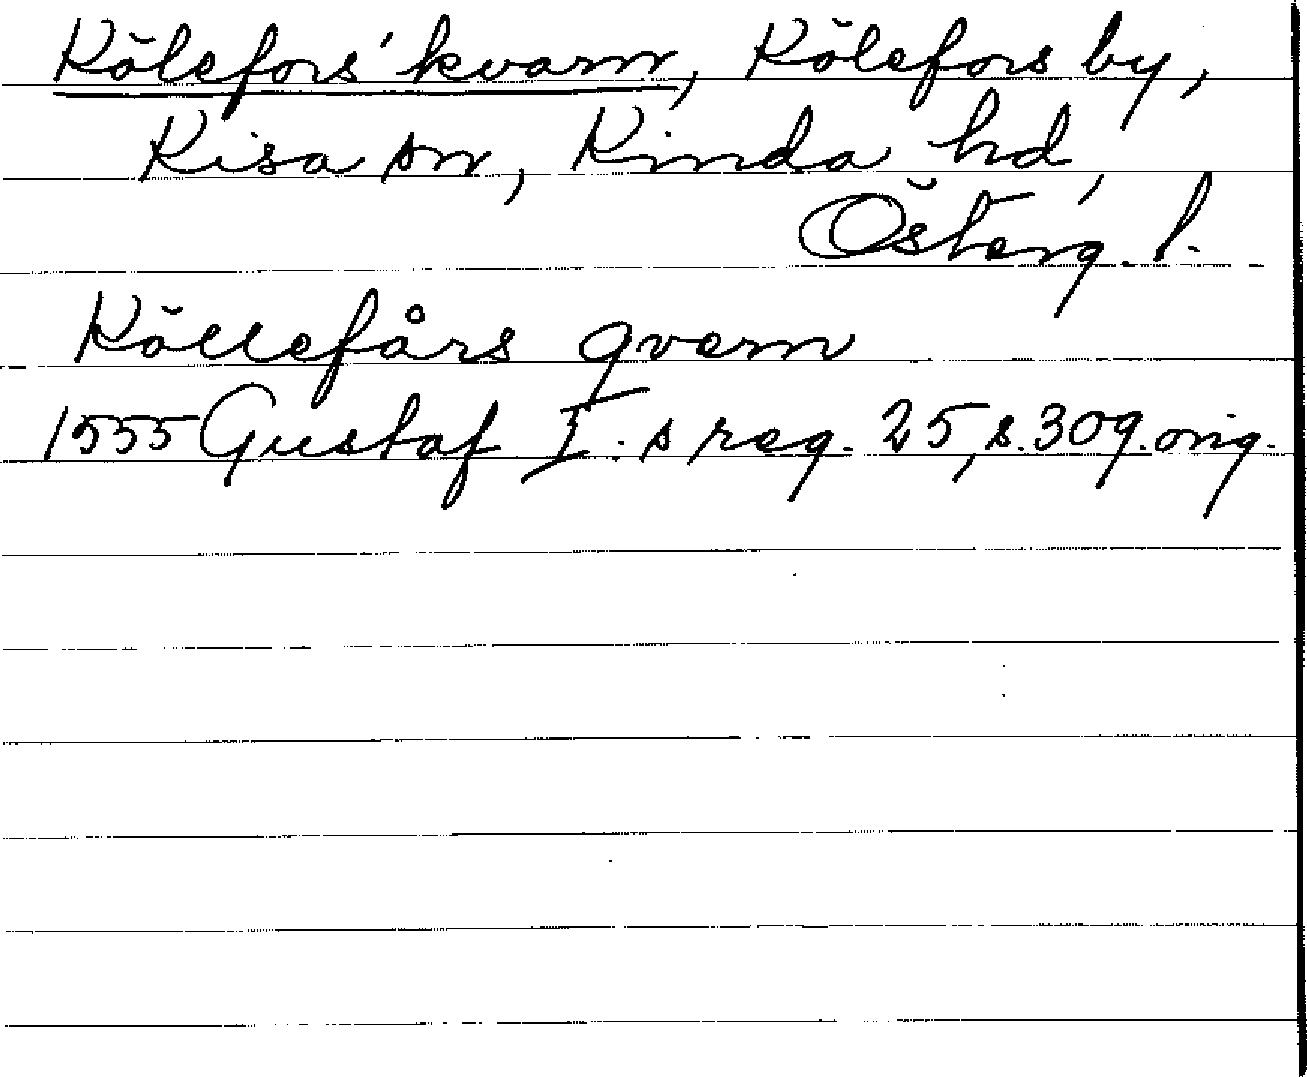 Kölefors' kvarn, Kölefors by,
Kisa sn, Kinda hd,
Österg. l.
Köllefårs qvern
1555 Gustaf I:s reg. 25, s. 309. orig.